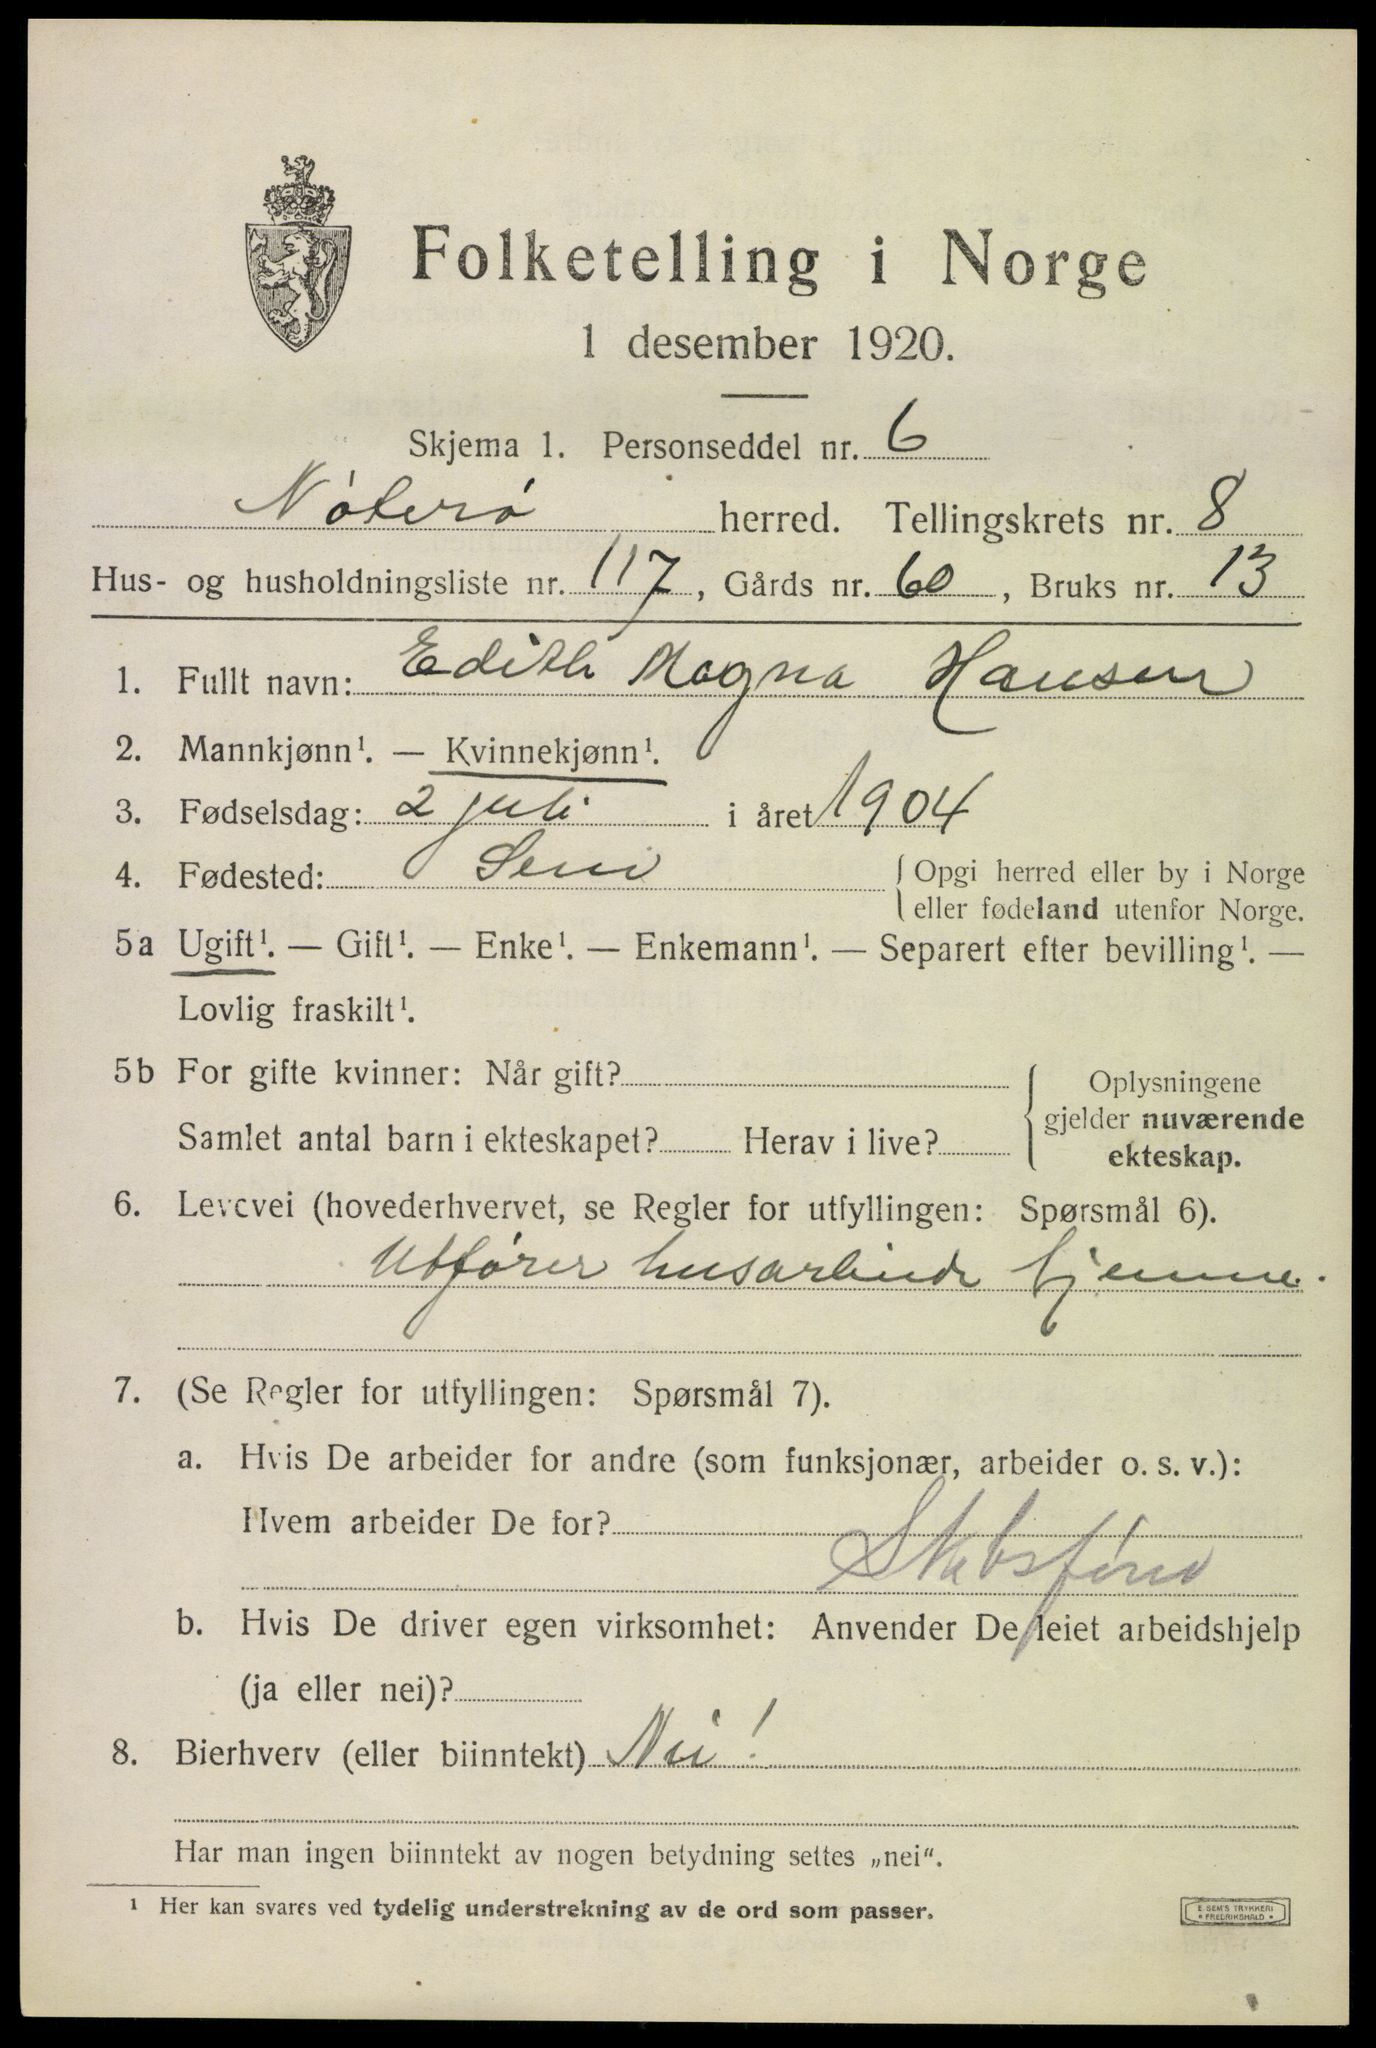 Folketelling i Norge
1 desember 1920.
Skjema 1. Personseddel nr. 6
Nøterø herred. Tellingskrets nr. 8
Hus- og husholdningsliste nr. 117, Gårds nr. 60, Bruks nr. 13
1. Fullt navn: Edith Magna Hansen
2. Mannkjønn¹. — Kvinnekjønn¹.
3. Fødselsdag: 2 juli i året 1904
4. Fødested: Sem { Opgi herred eller by i Norge
eller fødeland utenfor Norge.
5a Ugift¹. — Gift¹. — Enke¹. — Enkemann¹. — Separert efter bevilling¹. —
Lovlig fraskilt¹.
5b For gifte kvinner: Når gift?
Samlet antal barn i ekteskapet? Herav i live?
Oplysningene
gjelder nuværende
ekteskap.
6. Levevei (hovederhvervet, se Regler for utfyllingen: Spørsmål 6).
Utfører husarbeide hjemme.
7. (Se Regler for utfyllingen: Spørsmål 7).
a. Hvis De arbeider for andre (som funksjonær, arbeider o. s. v.):
Hvem arbeider De for?
b. Hvis De driver egen virksomhet: Anvender De leiet arbeidshjelp
(ja eller nei)?
8. Bierhverv (eller biinntekt) Nei!
Har man ingen biinntekt av nogen betydning settes „nei“.
¹ Her kan svares ved tydelig understrekning av de ord som passer.
E. SEM'S TRYKKERI
• FREDRIKSHALD •